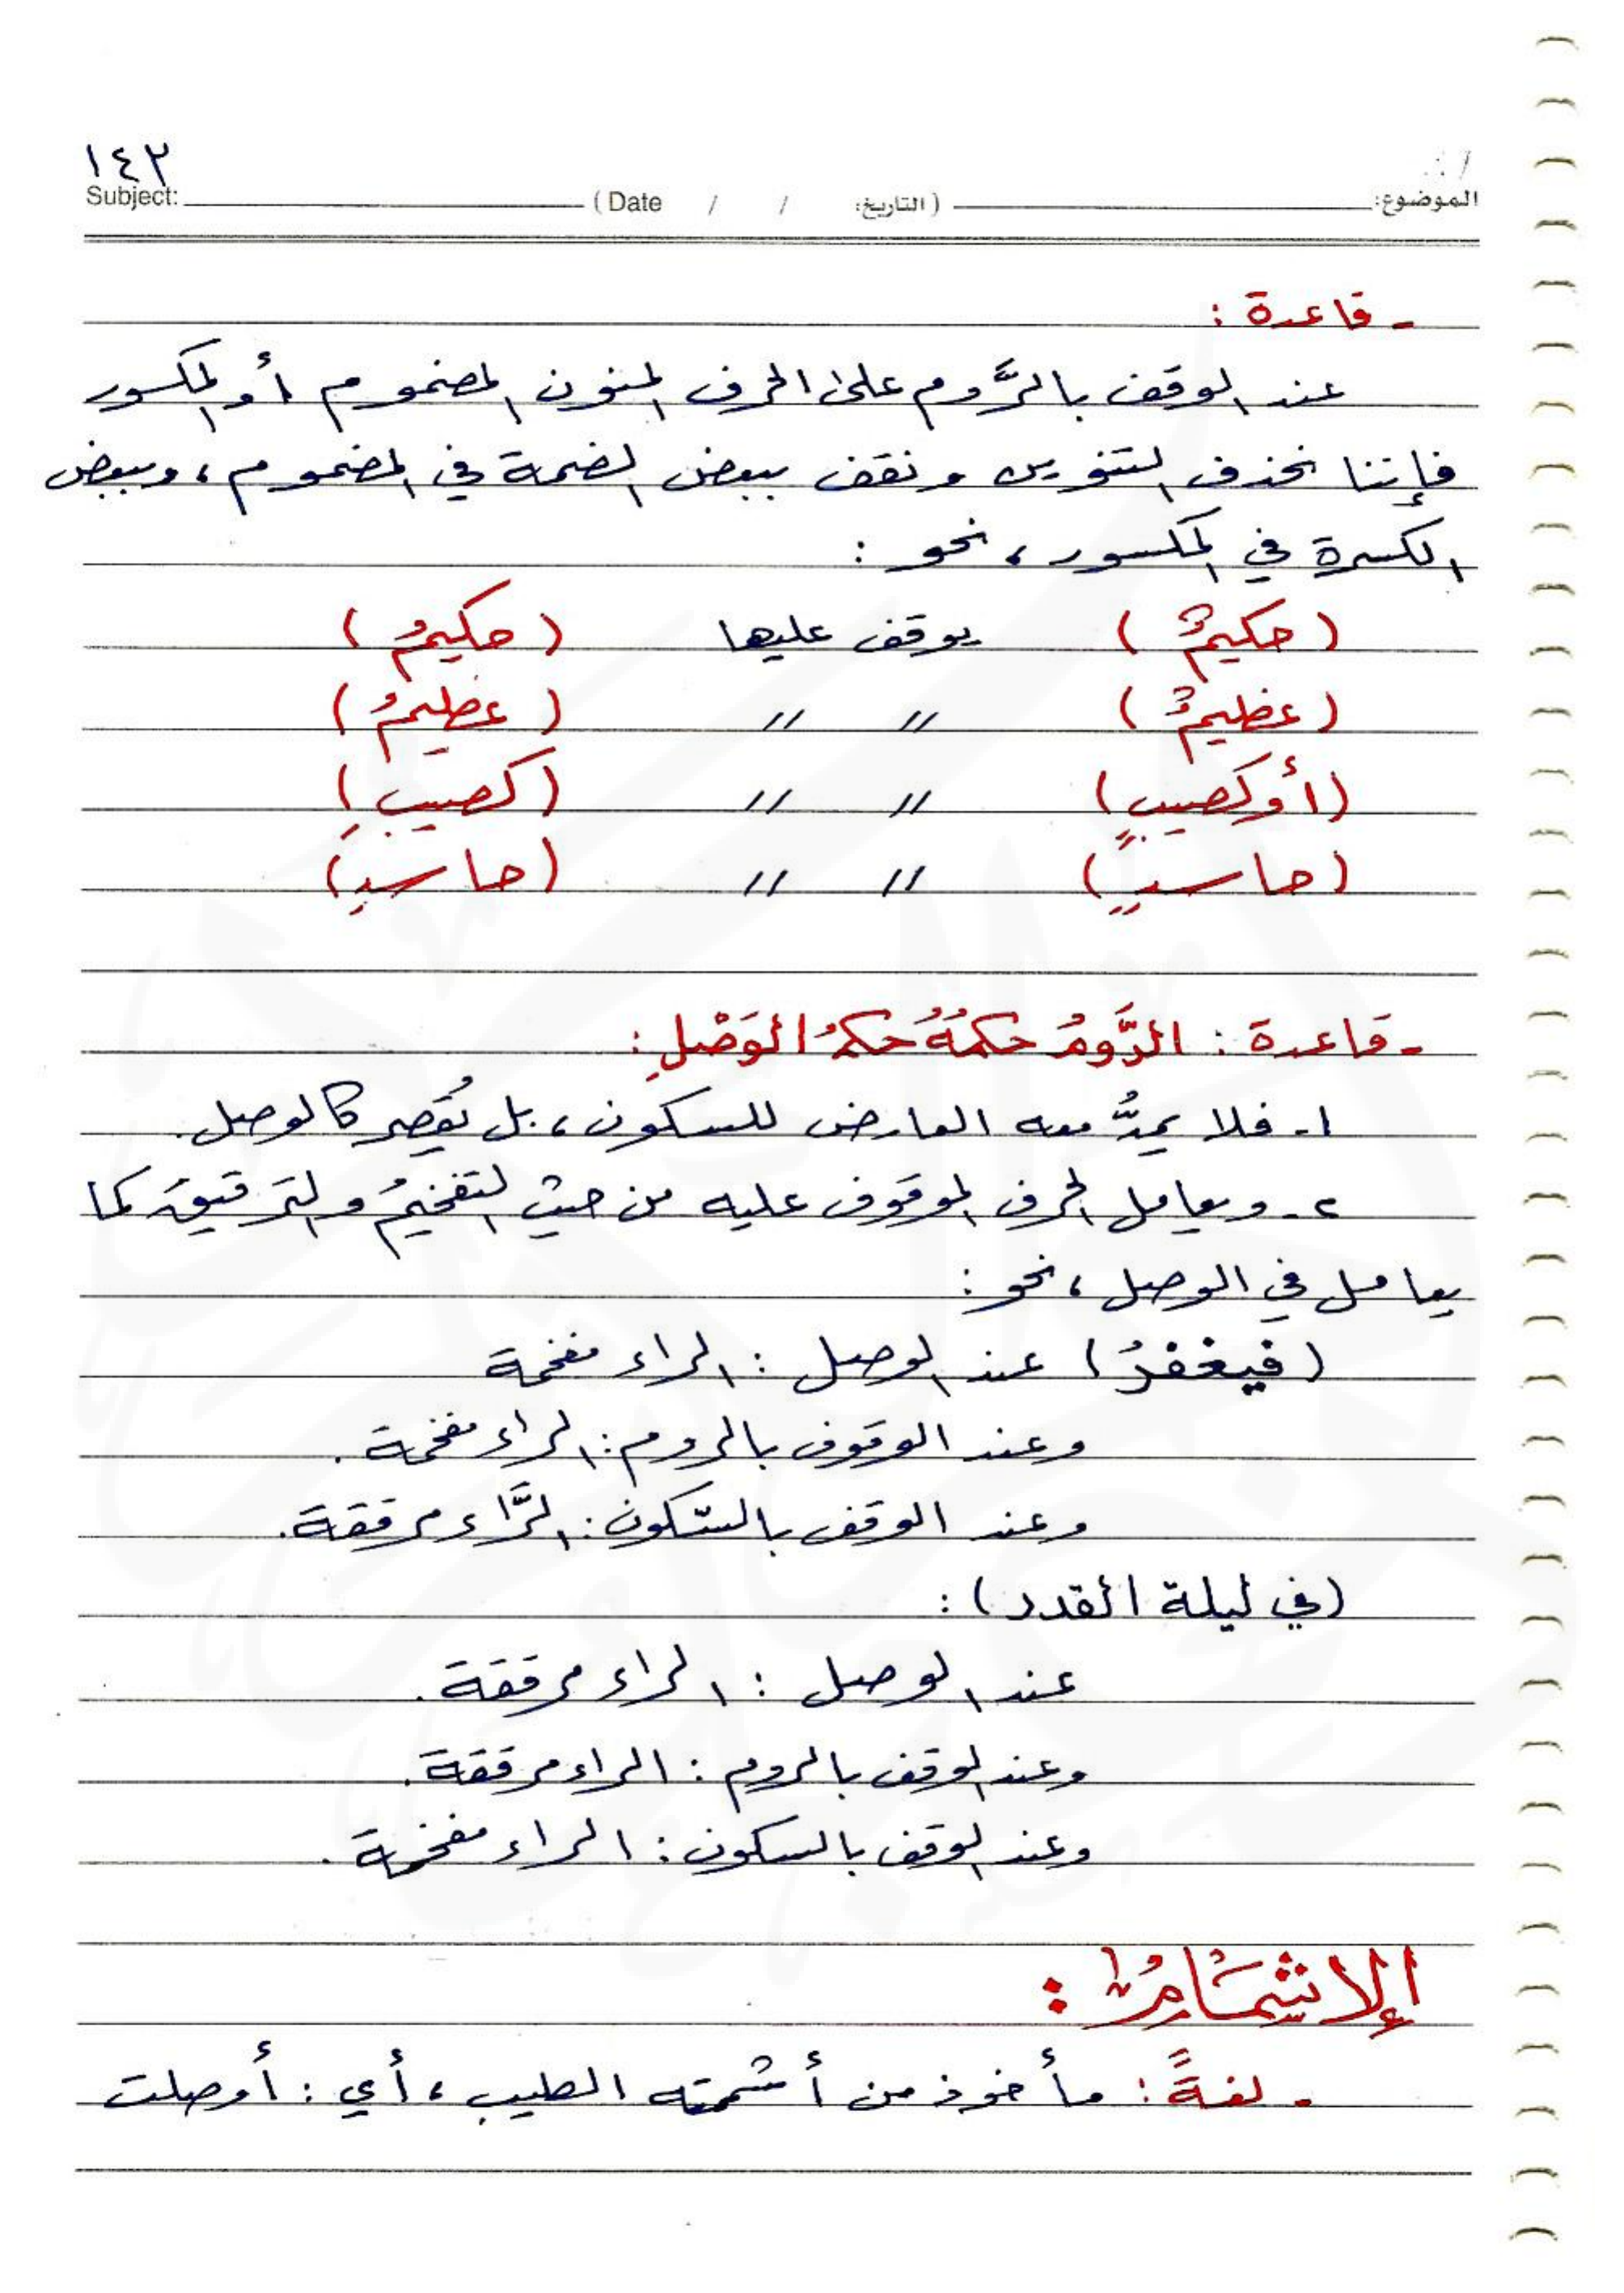 ١٤٣
Subject: ( Date / / التاريخ: ) الموضوع:
- قاعدة :
عند الوقف بالرَّوم على الحرف المنون المضموم أو المكسور
فإننا نحذف التنوين ونقف ببعض الضمة في المضموم، وببعض
الكسرة في المكسور، نحو :
(حكيمٌ) يوقف عليها (حكيمُ)
(عظيمٌ) // // (عظيمُ)
(أوكصيبٍ) // // (كصيبِ)
(حاسدٍ) // // (حاسدِ)
- قاعدة : الرَّومُ حكمُهُ حكمُ الوَصْلِ:
١- فلا يمدُّ معه العارض للسكون، بل يُقصر كالوصل.
٢- ويعامل الحرف الموقوف عليه من حيث التفخيم والترقيق كما
يعامل في الوصل، نحو:
(فيغفرُ) عند الوصل : الراء مفخمة
وعند الوقوف بالروم: الراء مفخمة.
وعند الوقف بالسّكون: الرَّاء مرققة.
(في ليلة القدر) :
عند الوصل : الراء مرققة.
وعند الوقف بالروم : الراء مرققة.
وعند الوقف بالسكون : الراء مفخمة.
الإشمَامُ :
- لغةً : مأخوذ من أشممته الطيب، أي : أوصلت